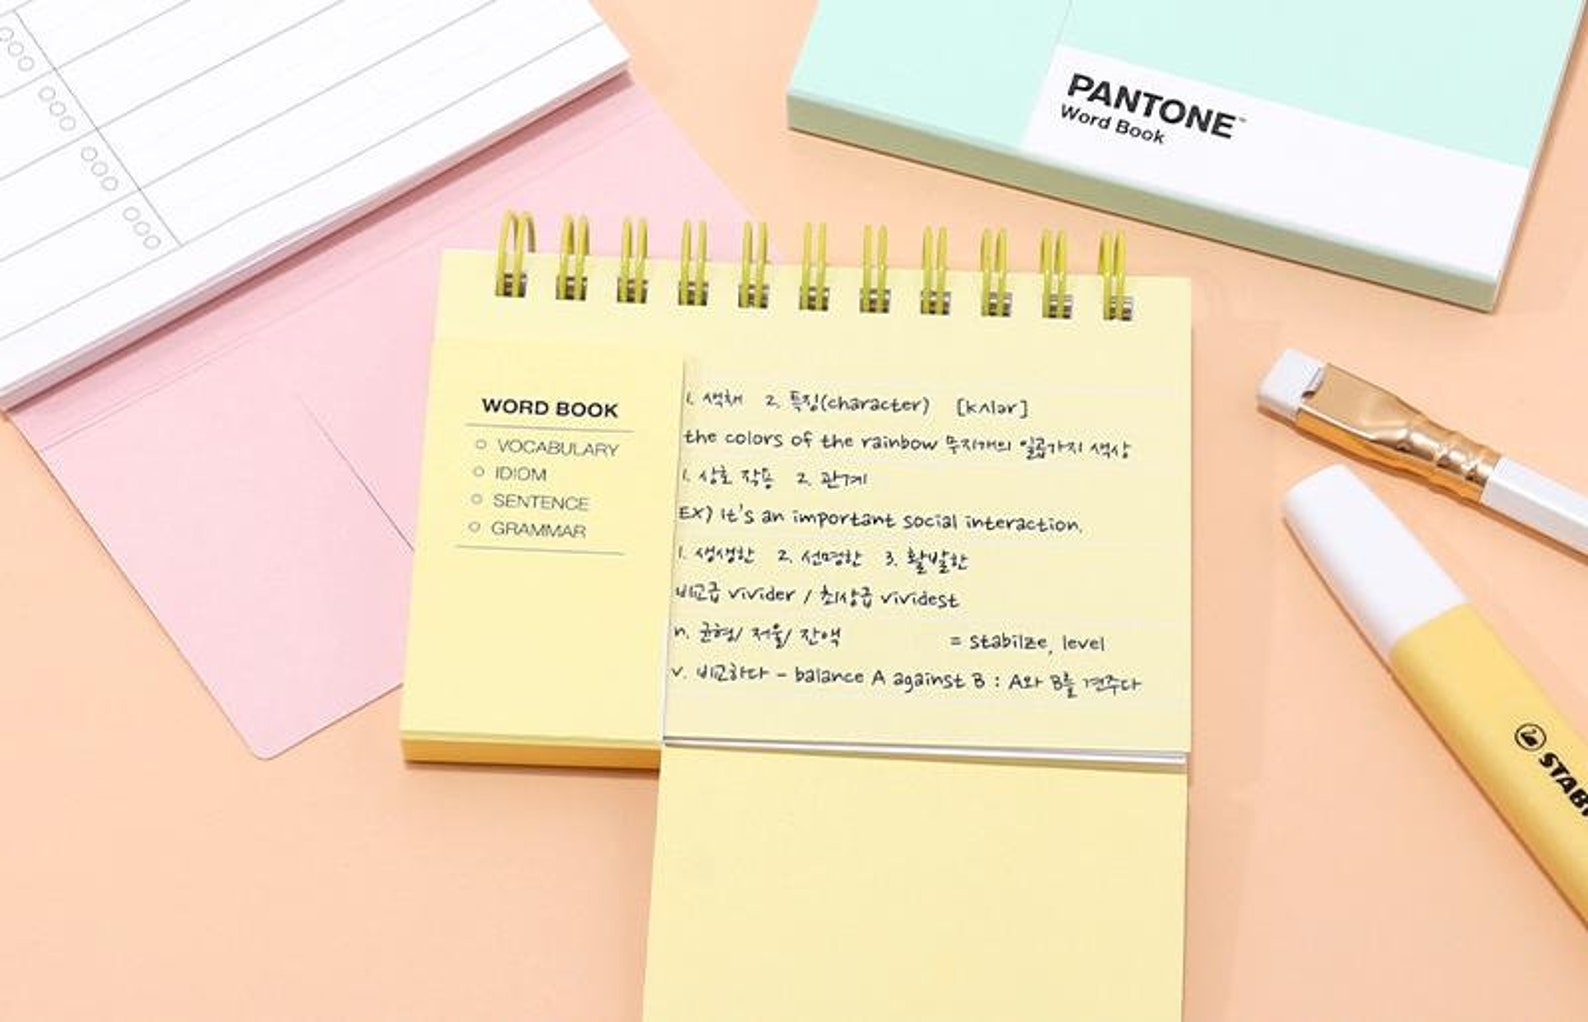 PANTONE™
Word Book
WORD BOOK
VOCABULARY
IDIOM
SENTENCE
GRAMMAR
1. 색채 2. 특징(character) [kʌlər]
the colors of the rainbow 무지개의 일곱가지 색상
1. 상호 작용 2. 관계
EX) It's an important social interaction.
1. 생생한 2. 선명한 3. 활발한
비교급 vivider / 최상급 vividest
n. 균형/ 저울/ 잔액 = stabilze, level
v. 비교하다 - balance A against B : A와 B를 견주다
STABI